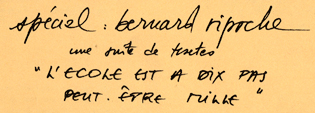 spéciel : bernard ripoche
une suite de textes
"L'ECOLE EST A DIX PAS
PEUT-ÊTRE MILLE"